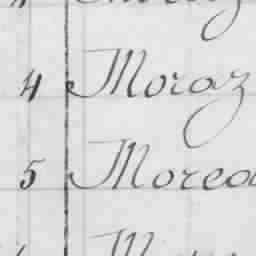 4 Moraz
5 Morea